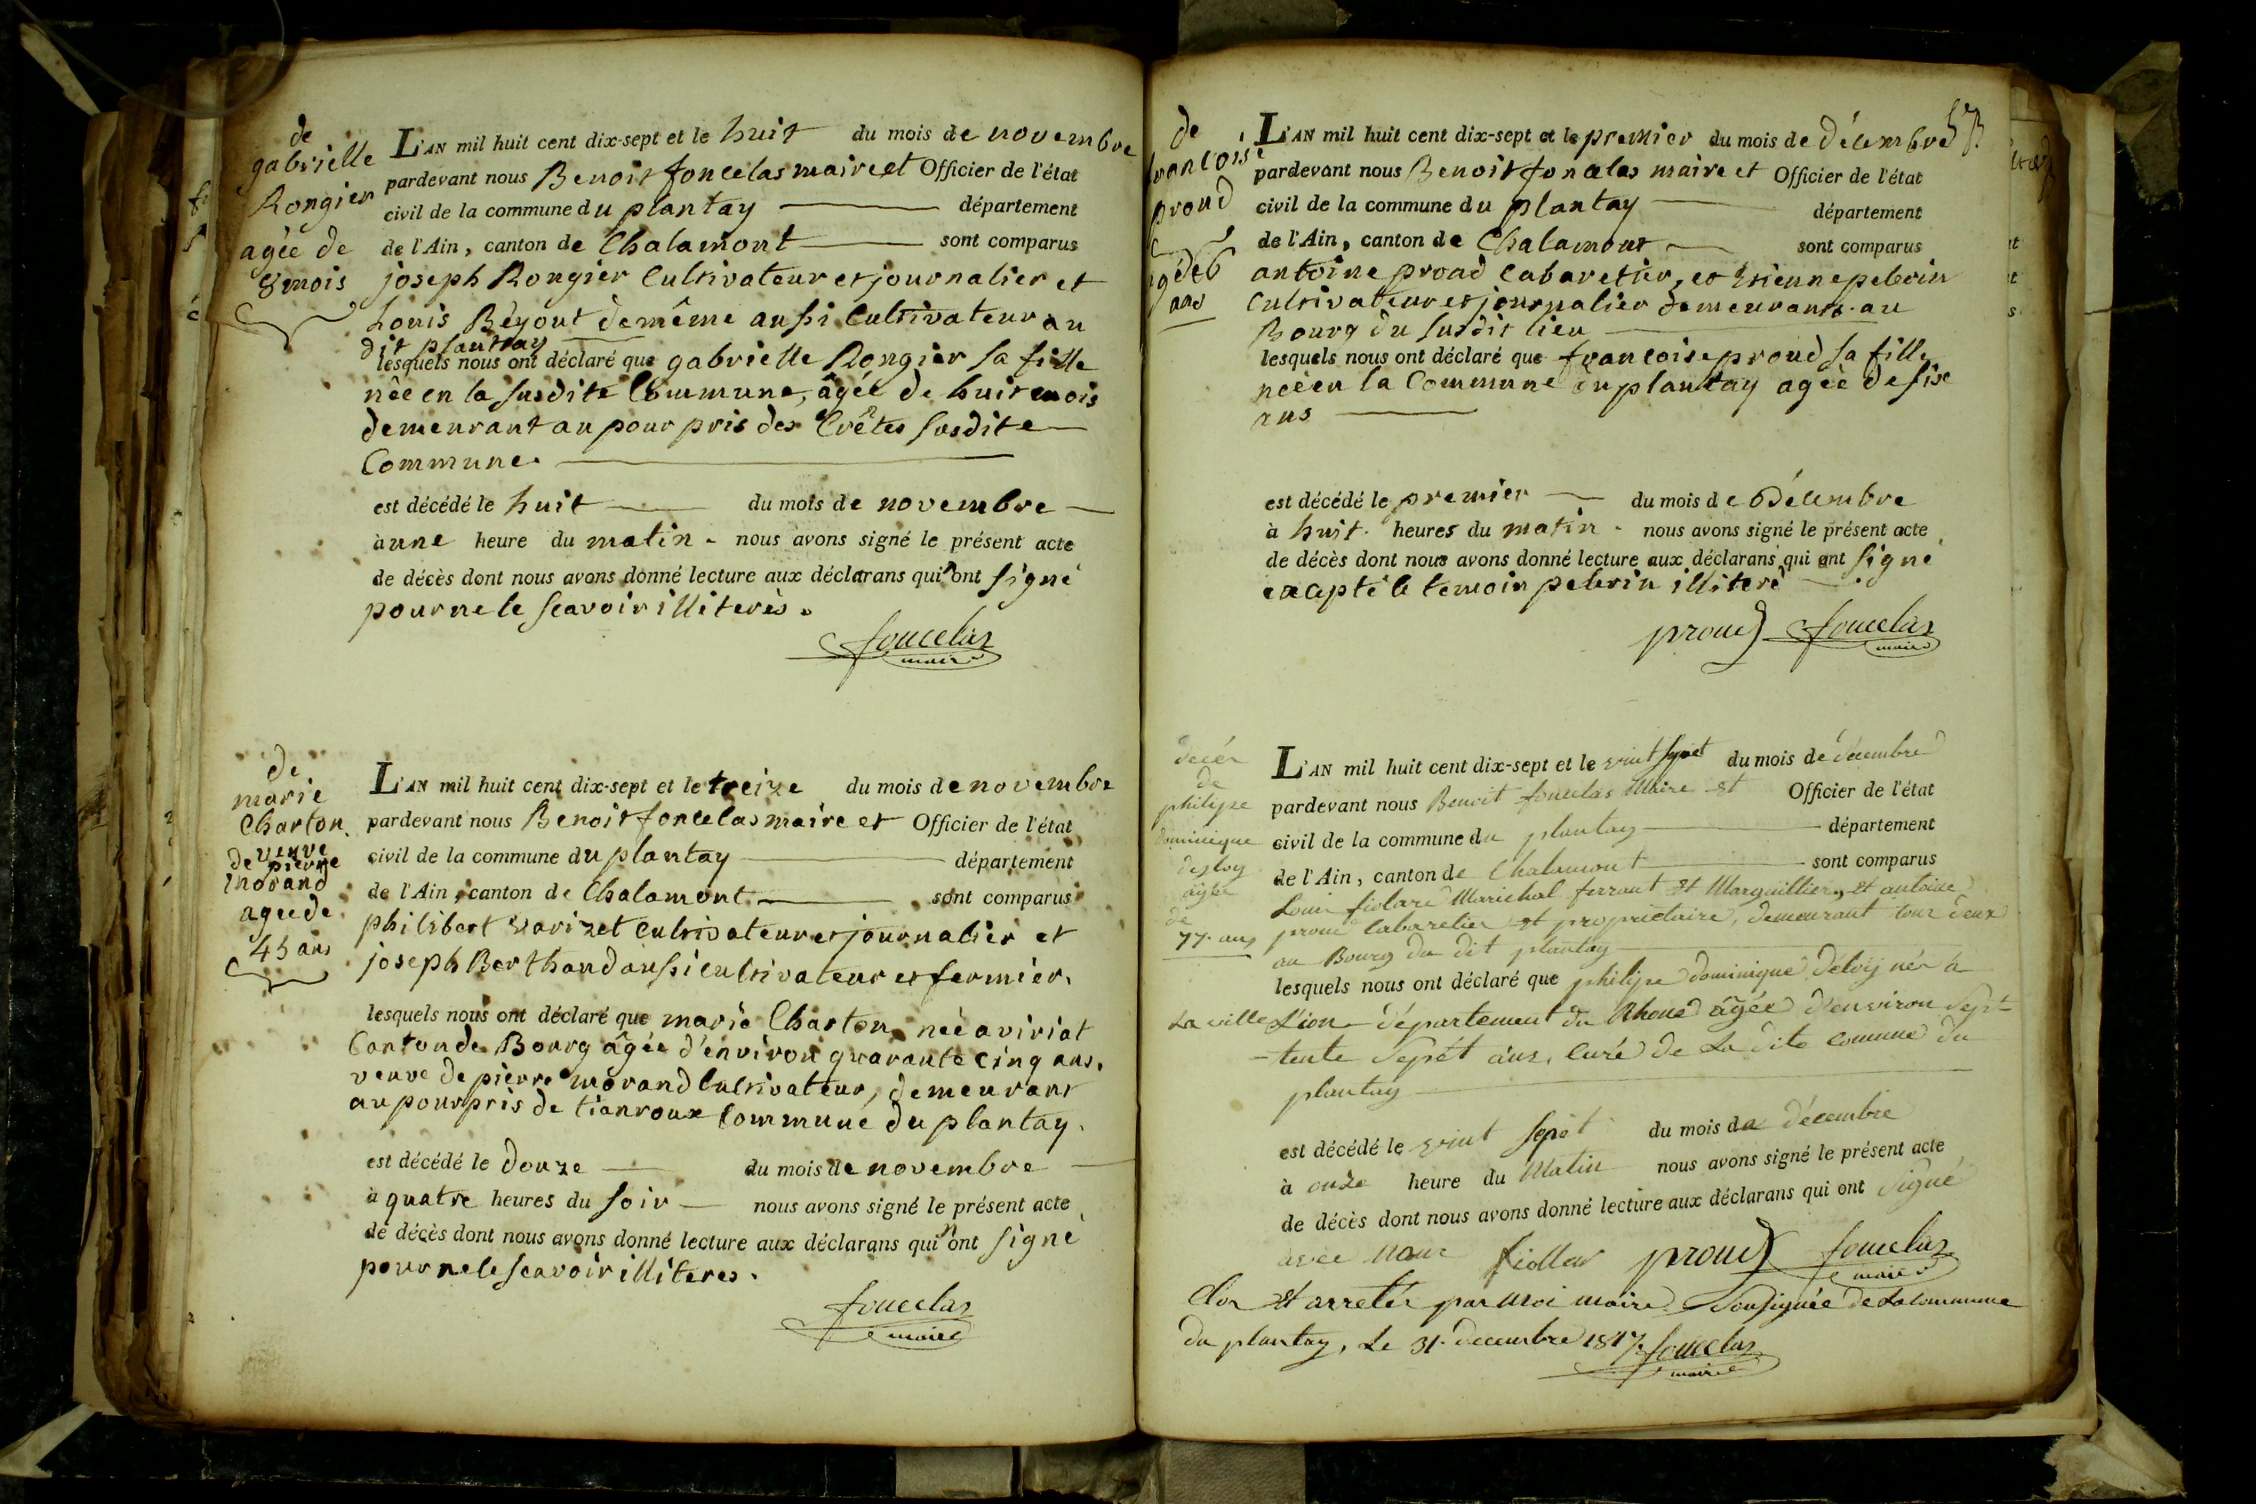 de
gabrielle
Rongier
agée de
8 mois
L'AN mil huit cent dix-sept et le huit du mois de novembre
pardevant nous Benoit foncelas maire et Officier de l'état
civil de la commune du plantay département
de l'Ain, canton de Chalamont sont comparus
joseph Rongier Cultivateur et journalier et
Louis Béyout de même aussi Cultivateur au
dit plantay
lesquels nous ont déclaré que gabrielle Rongier sa fille
née en la susdite Commune, âgée de huit mois
demeurant au pourpris des Crêtes susdite
Commune.
est décédé le huit du mois de novembre
à une heure du matin. nous avons signé le présent acte
de décès dont nous avons donné lecture aux déclarans qui n'ont signé
pour ne le scavoir illiterès.
foncelas
maire
de
marie
Charton
veuve
de pierre
morand
agée de
45 ans
L'AN mil huit cent dix-sept et le treize du mois de novembre
pardevant nous Benoit foncelas maire et Officier de l'état
civil de la commune du plantay département
de l'Ain, canton de Chalamont sont comparus
philibert varizet Cultivateur et journalier et
joseph Berthaud aussi cultivateur et fermier.
lesquels nous ont déclaré que marie Charton née a viriat
Canton de Bourg âgée d'environ quarante cinq ans.
veuve de pierre morand Cultivateur, demeurant
au pourpris de tianroux Commune du plantay.
est décédé le douze du mois de novembre
à quatre heures du soir nous avons signé le présent acte
de décès dont nous avons donné lecture aux déclarans qui n'ont signé
pour ne le scavoir illiteres.
foncelas
maire
57
de
francoise
proud
agé de 6
ans
L'AN mil huit cent dix-sept et le premier du mois de décembre
pardevant nous Benoit foncelas maire et Officier de l'état
civil de la commune du plantay département
de l'Ain, canton de Chalamont sont comparus
antoine proud Cabaretier, et etienne pelerin
Cultivateur et journalier demeurants au
Bourg du susdit lieu
lesquels nous ont déclaré que francoise proud sa fille
née en la Commune du plantay agée de six
ans
est décédé le premier du mois de Décembre
à huit. heures du matin. nous avons signé le présent acte
de décès dont nous avons donné lecture aux déclarans qui ont signé
excepté le temoin pelerin illiteré
proud foncelas
maire
décés
de
philipe
dominique
deloy
âgée
de
77. ans
L'AN mil huit cent dix-sept et le vint sepet du mois de décembre
pardevant nous Benoit foncelas Maire et Officier de l'état
civil de la commune du plantay département
de l'Ain, canton de Chalamont sont comparus
Louis fiolare Marichal ferrant et Marguillier, et antoine
proud Cabaretier et propriétaire, demeurant tour deux
au Bourg du dit plantay
lesquels nous ont déclaré que philipe dominique Déloy née à
La ville Lion département du Rhone âgée d'environ sept
tente sepét ans, curé de La dite commune du
plantay
est décédé le vint sepét du mois de décembre
à onze heure du Matin nous avons signé le présent acte
de décès dont nous avons donné lecture aux déclarans qui ont signé
avec Nour fiollar proud foncelas
maire
Clor et arretés par Moi maire Sousignée de La commune
du plantay, Le 31. decembre 1817. foncelas
maire